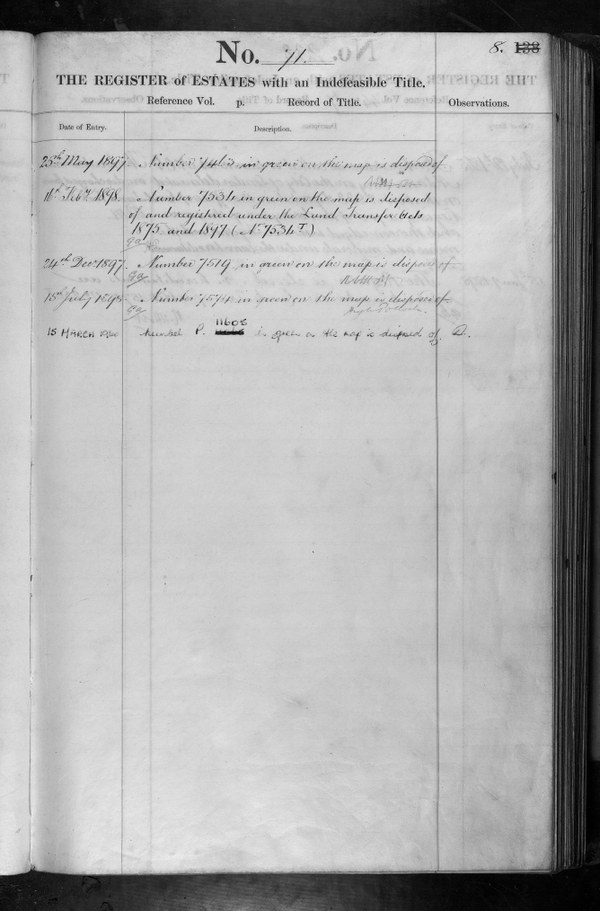 No. 71.
8. 138
THE REGISTER of ESTATES with an Indefeasible Title.
Reference Vol. p. Record of Title. Observations.
Date of Entry. Description.
25th May 1897 Number in green on the map is disposed of
Feby 1898. Number 7534 in green on the map is disposed
of and registered under the Land Transfer Acts
1875 and 1897 (No 7534T)
24th Decr 1897. Number 7519 in green on the map is disposed of
15th July 1898 Number 7574 in green on the map is disposed of
11608
15 MARCH Number P. in green on the map is disposed of D.